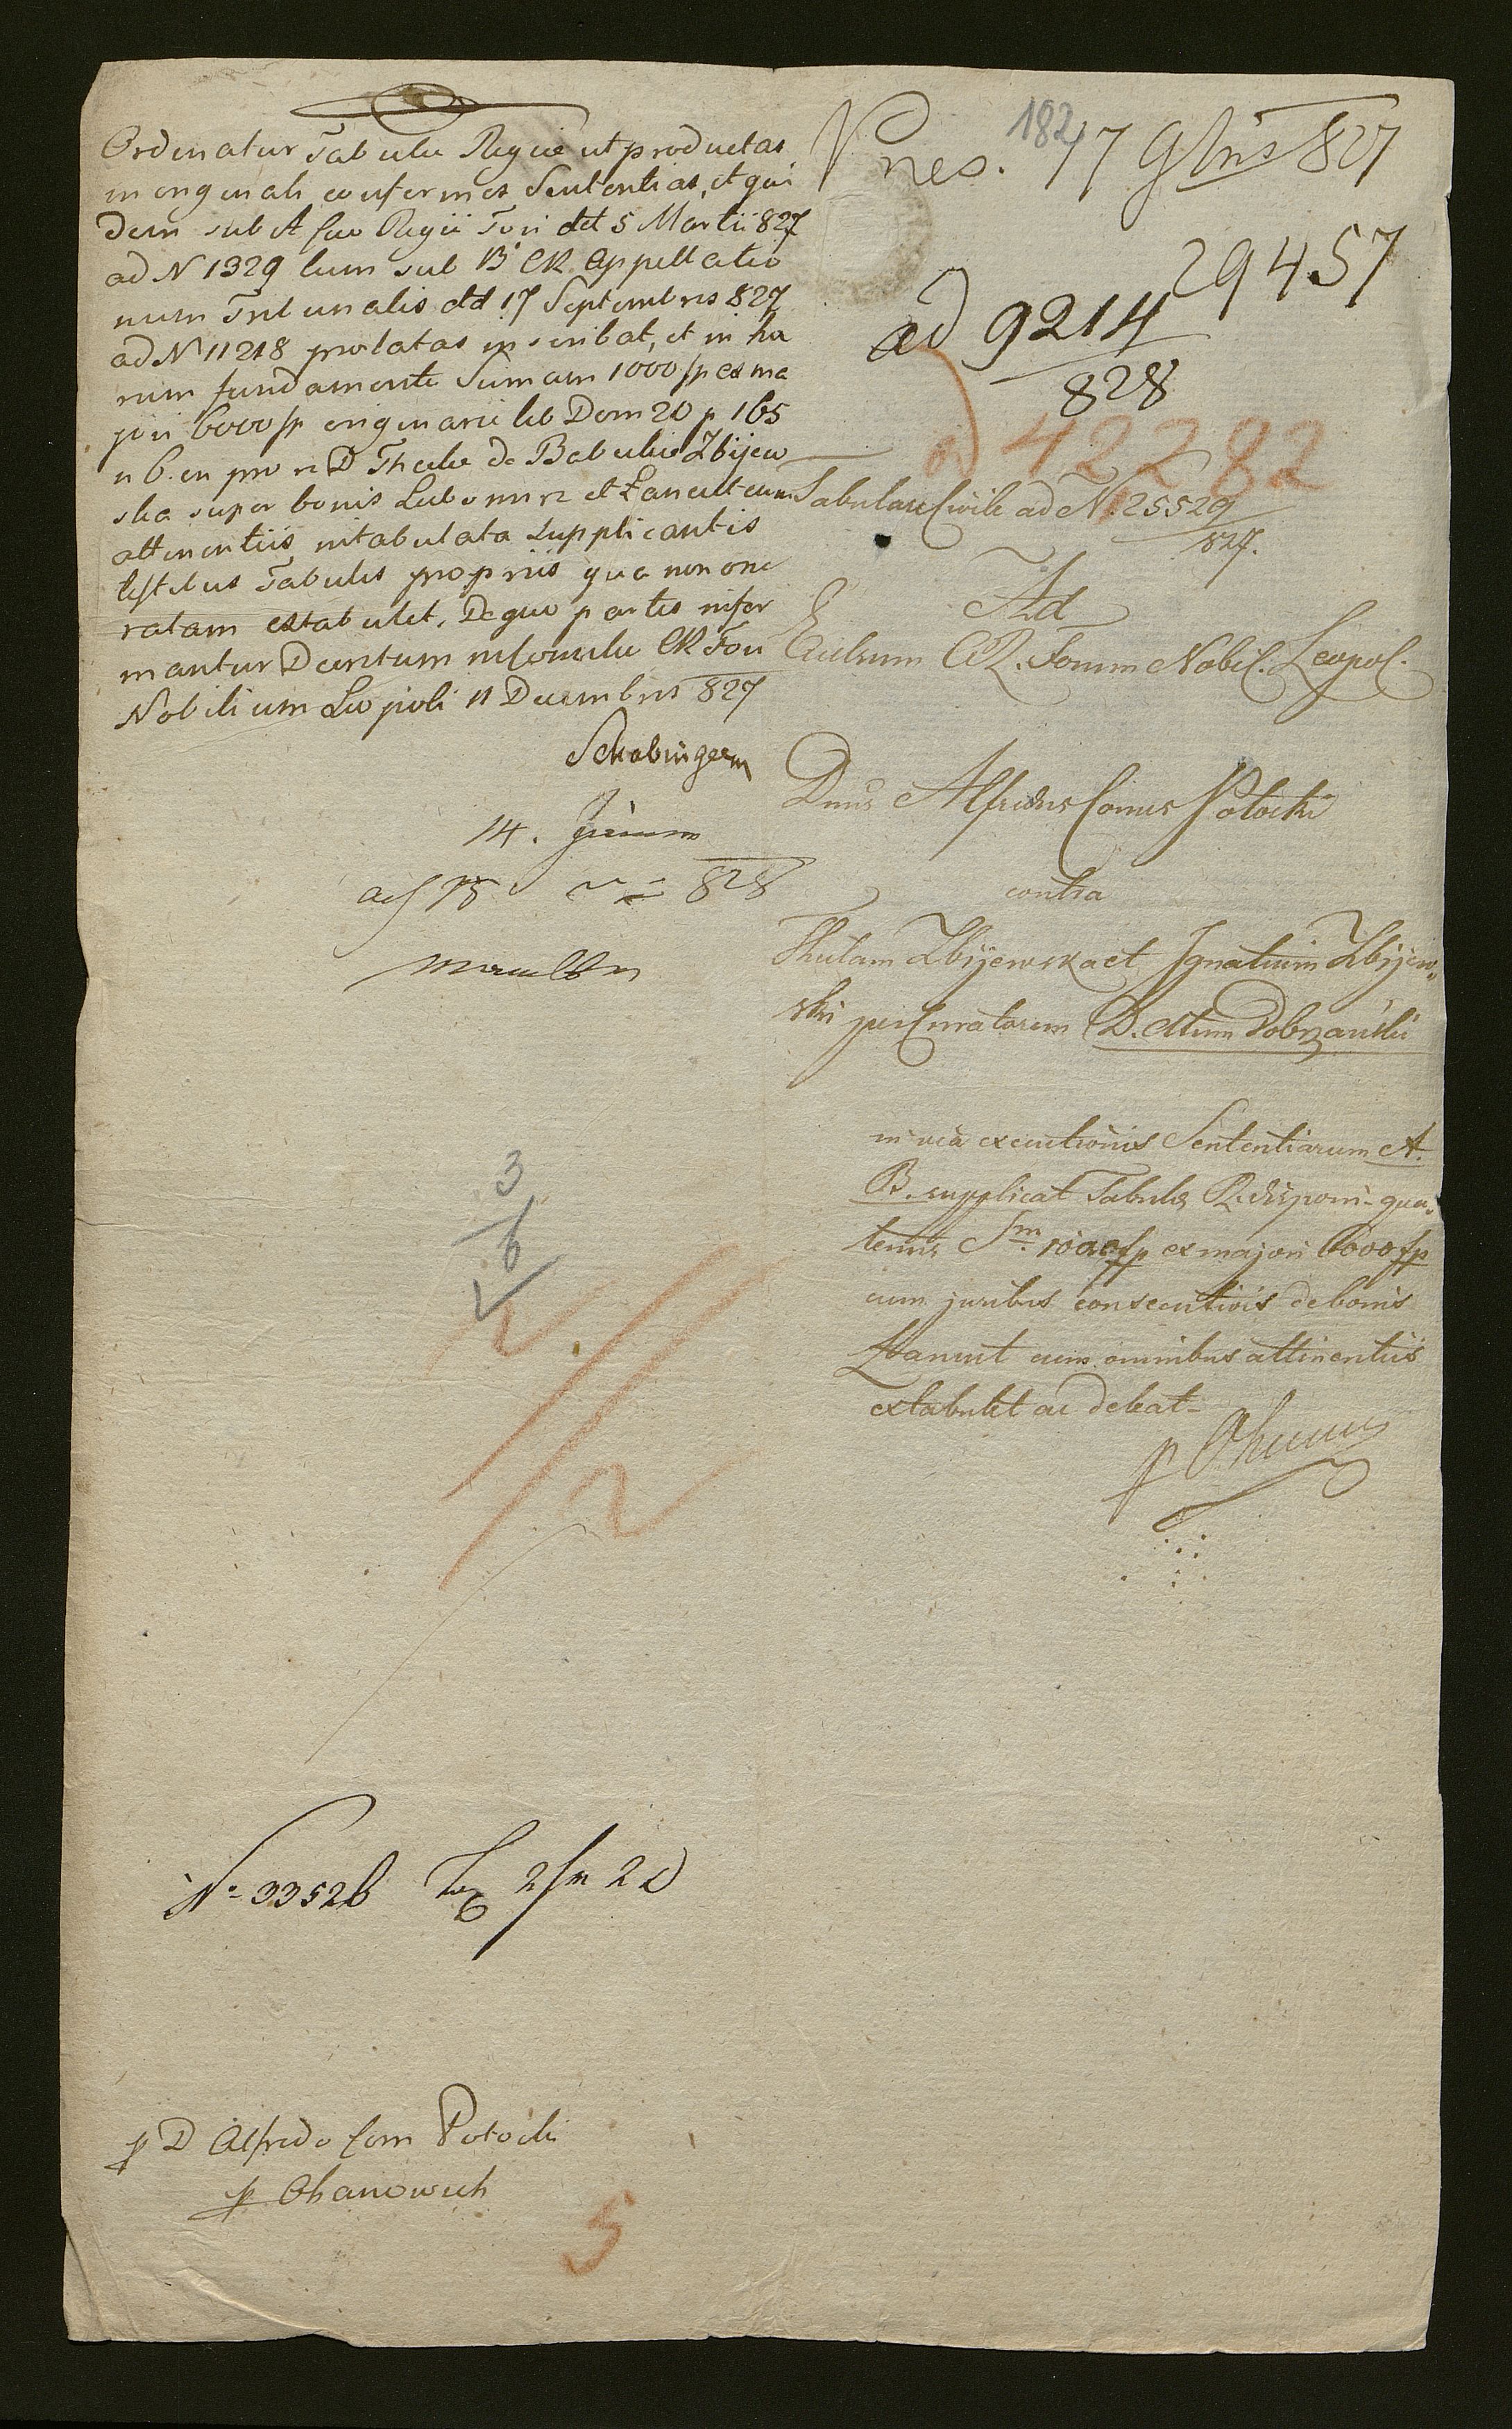 Ordinatur Tabulae Regiae ut productas
in originali conformes Sententias, et qui
dem sub A Caes Regii Fori dtt 5 Martii 827
ad N 1329 tum sub B CR Appellatio
num Tribunalis dtt 17 Septembris 827
ad N 11218 prolatas inscribat, et in ha
rum fundamento Summam 1000 fp ex ma
jori 6000 fp originarie lib Dom 20 p 165
n 6. on pro re D Thecla de Babeckie Zbijew
ska super bonis Lubomirz et Łancut cum
attinentiis intabulata Supplicantis
testibus Tabulis propriis qua non one
ratam extabulet, De quo partes infor
mantur Decretum in Consilio CR Fori
Nobilium Leopoli 11 Decembris 827
Schabinger m
14.
828
N° 33526
p D Alfredo Com Potocki
p Ohanowich
182
Pres. 17 9bris 827
29457
ad 9214
828
ad 42282
Tabulare Civile ad N. 25529
827.
Ad
Excelsum CR. Forum Nobil. Leopol.
Dnus Alfredus Comes Potocki
contra
Theclam Zbijewska et Ignatium Zbijew-
ski per Curatorem D. Attum Dobrzański
in via executionis Sententiarum A.
B. supplicat Tabulae R. disponi - qua-
tenus Sm 1000 fp ex majori 6000 fp
cum juribus consecutivis de bonis
Łancut cum omnibus attinentiis
extabulet ac deleat -
3
6
5